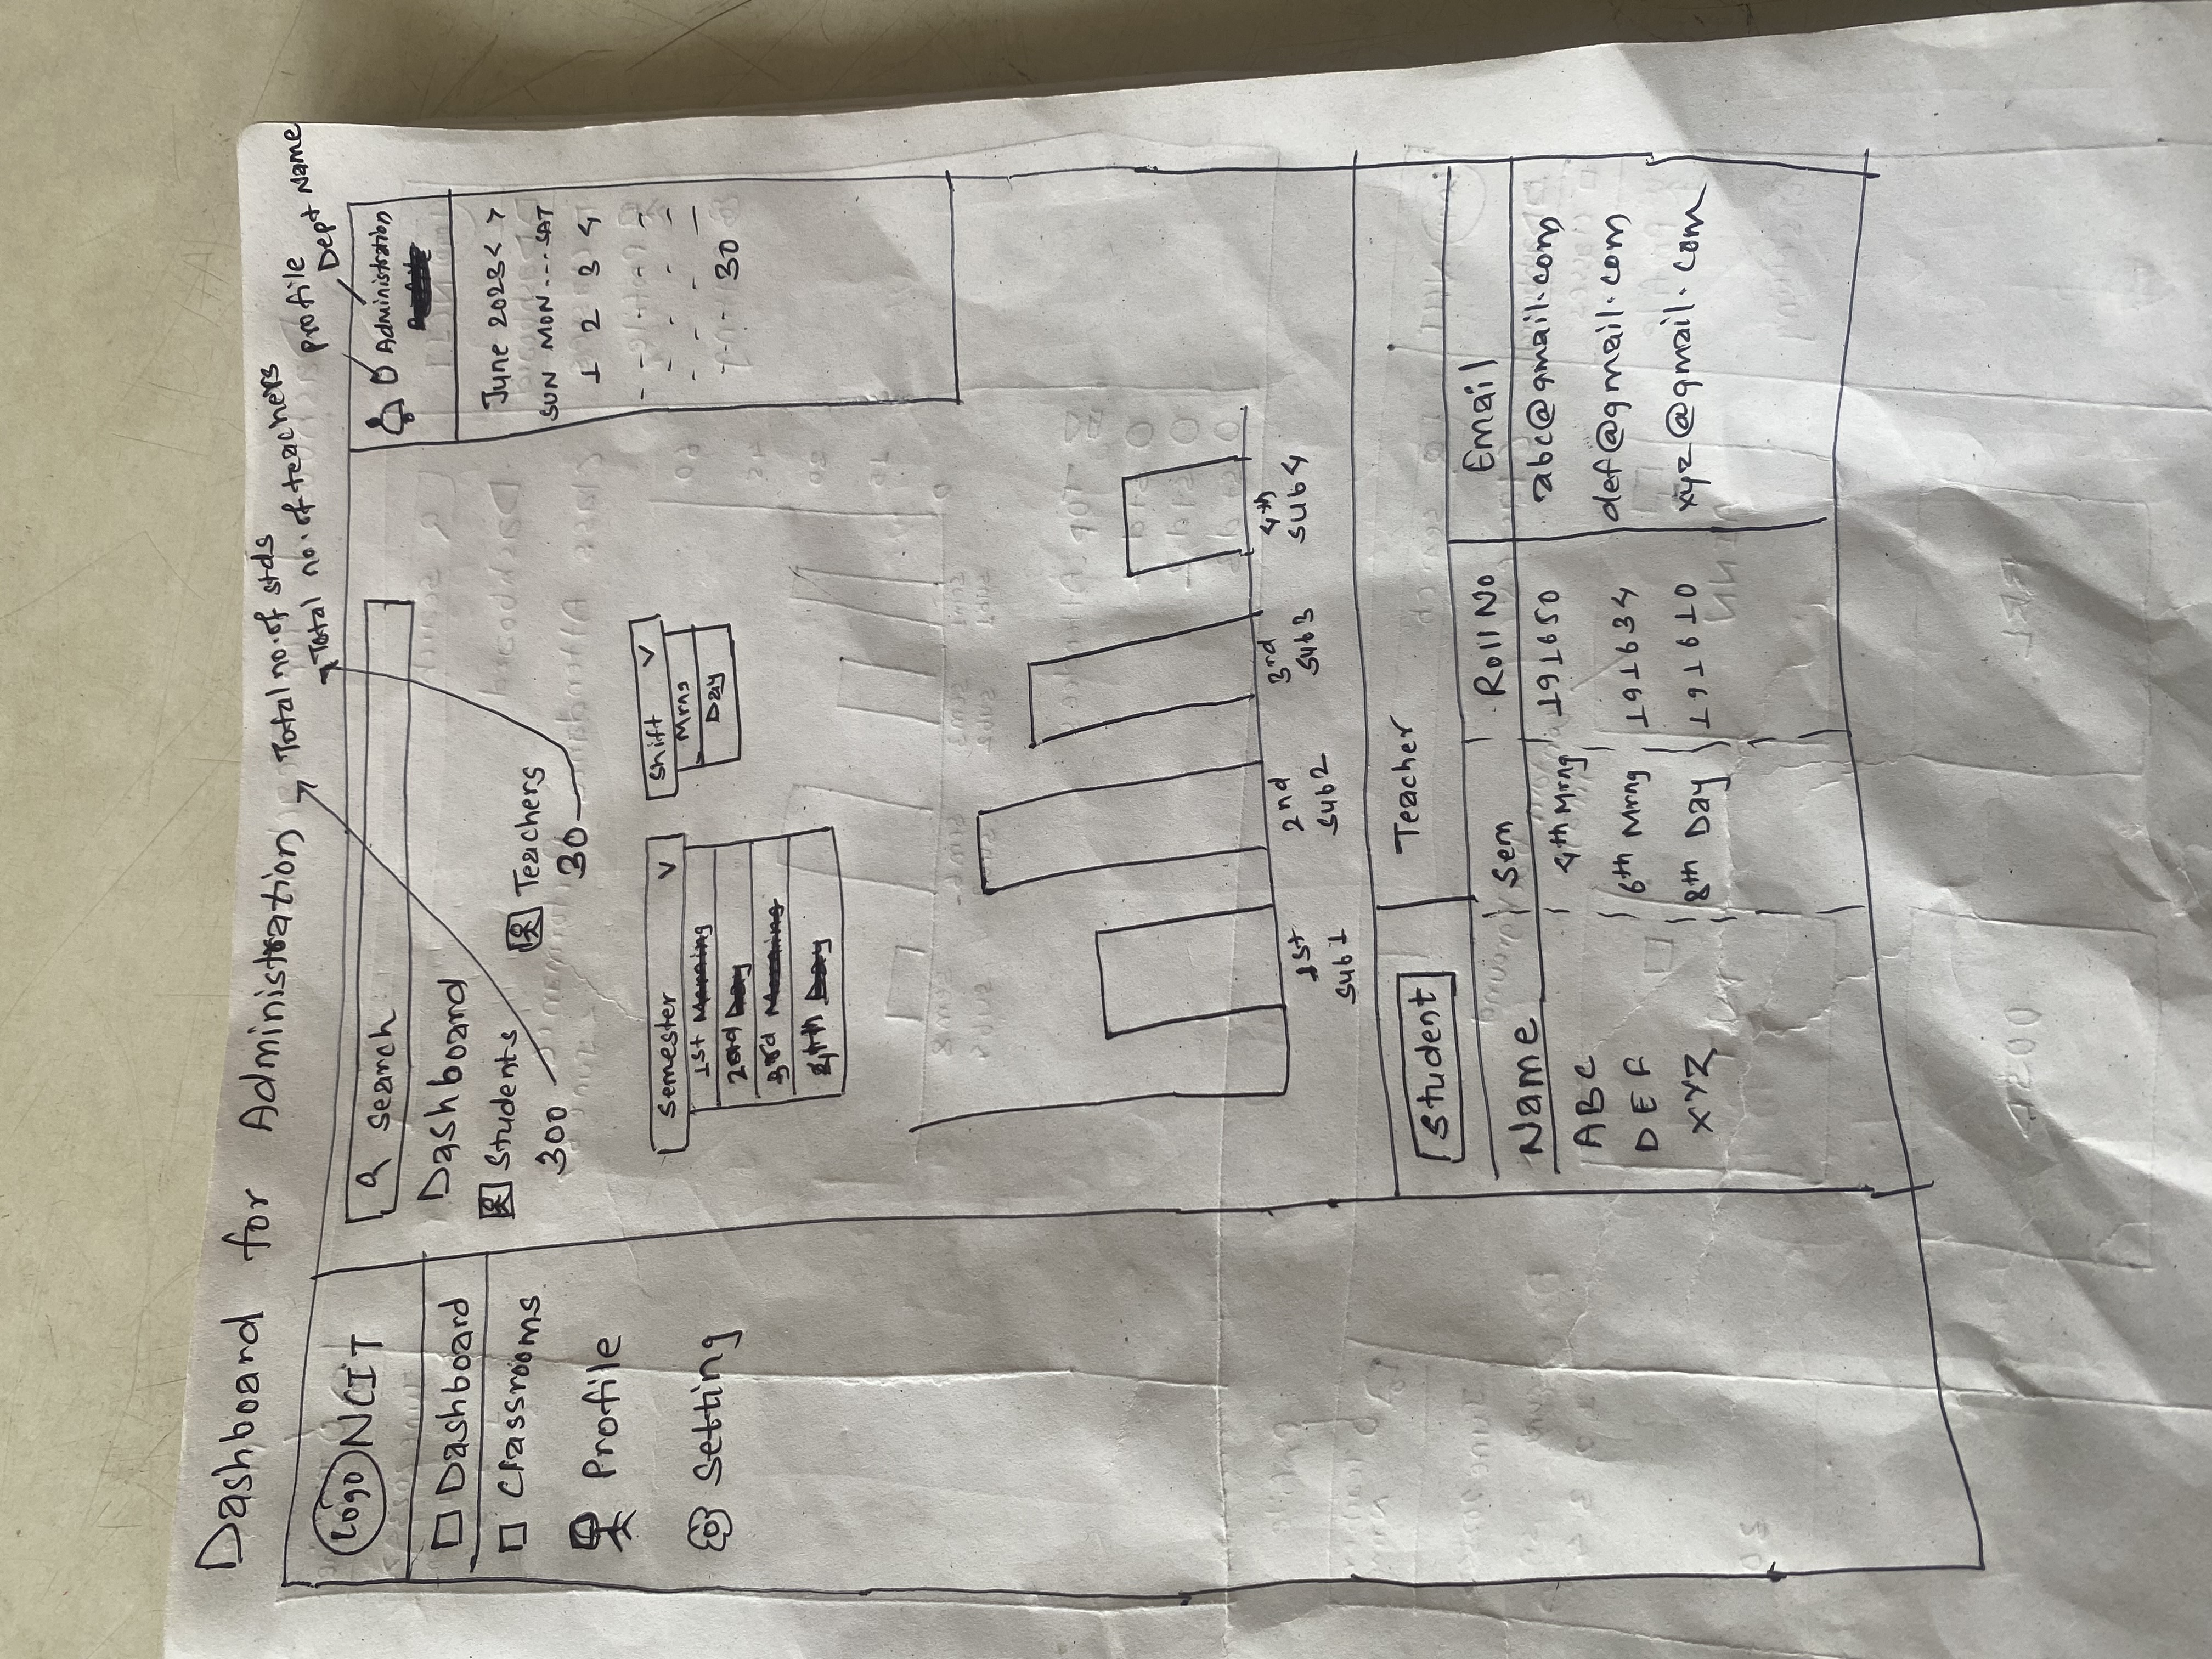 Dashboard for Administration
Total no. of stds
Total no. of teachers
Profile
Dept Name
Logo NCIT
Search
Administration
Dashboard
Classrooms
Profile
Setting
Dashboard
Students
300
Teachers
30
June 2023 < >
SUN MON ... SAT
1 2 3 4
- - - - -
- - - -
- - - -
- - - 30
Semester V
1st Morning
2nd Day
3rd Morning
4th Day
Shift V
Mrng
Day
1st 2nd 3rd 4th
Sub1 Sub2 Sub3 Sub4
Student Teacher
Name Sem Roll No Email
ABC 4th Mrng 191650 abc@gmail.com
DEF 6th Mrng 191634 def@gmail.com
XYZ 8th Day 191610 xyz@gmail.com